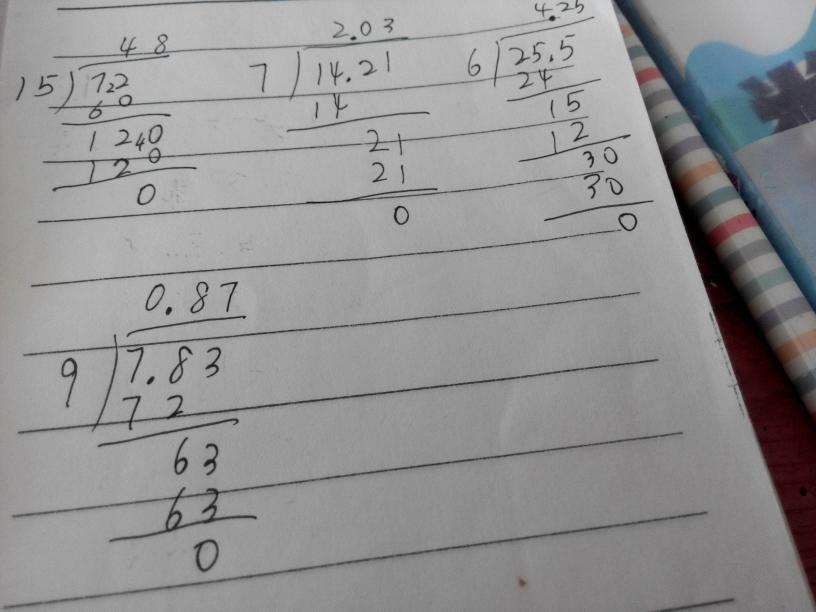 4 8
15)7.2
6 0
1 2 0
1 2 0
0
2.03
7)14.21
14
21
21
0
4.25
6)25.5
24
15
12
30
30
0
0.87
9)7.83
7 2
63
63
0